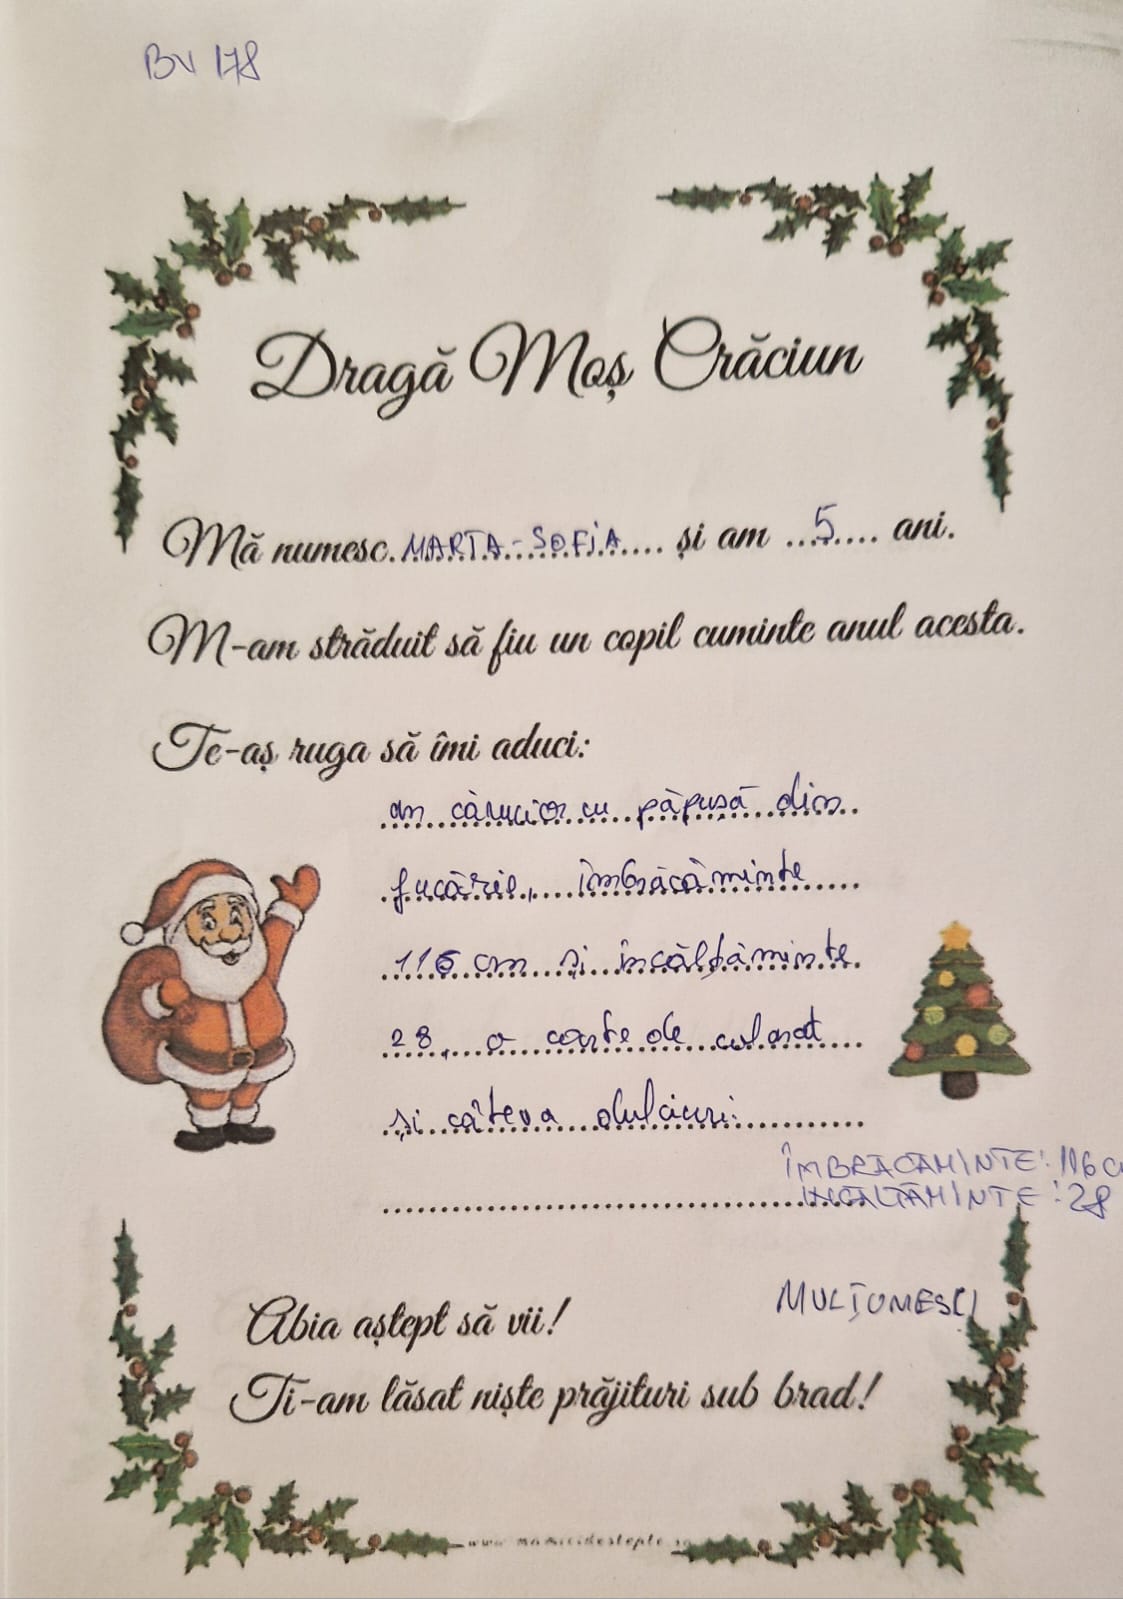 BV 178
Dragă Moș Crăciun
Mă numesc MARTA-SOFIA și am 5 ani.
M-am străduit să fiu un copil cuminte anul acesta.
Te-aș ruga să îmi aduci:
un cărucior cu păpușă din
jucărie, îmbrăcăminte
116 cm și încălțăminte
28, o carte de colorat
și câteva dulciuri.
ÎMBRĂCĂMINTE: 116 c
INCĂLTĂMINTE: 28
MULȚUMESC!
Abia aștept să vii!
Ti-am lăsat niște prăjituri sub brad!
www.mamicidestepte.ro